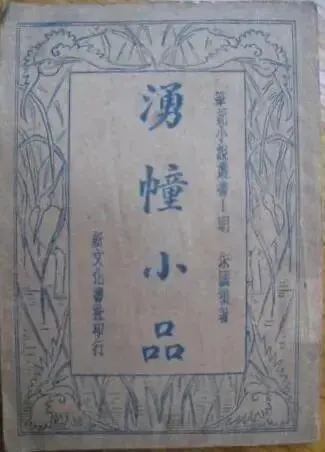 筆記小説叢書—明 朱國禎著
湧幢小品
新文化書社印行